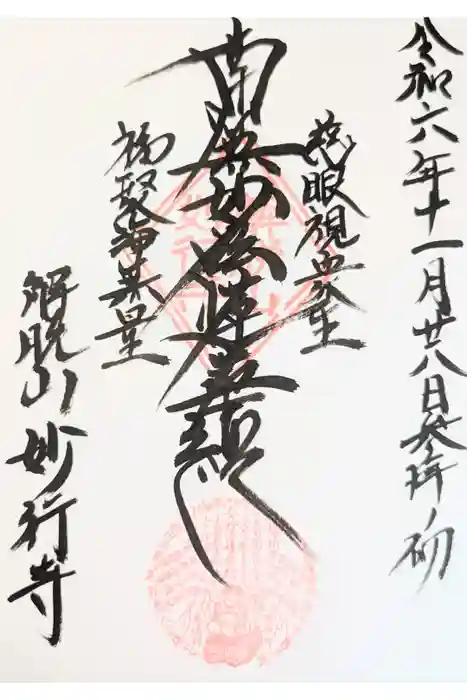 令和六年十一月廿八日参拝ノ砌
慈眼視衆生
南無妙法蓮華経
福聚海無量
解脱山妙行寺